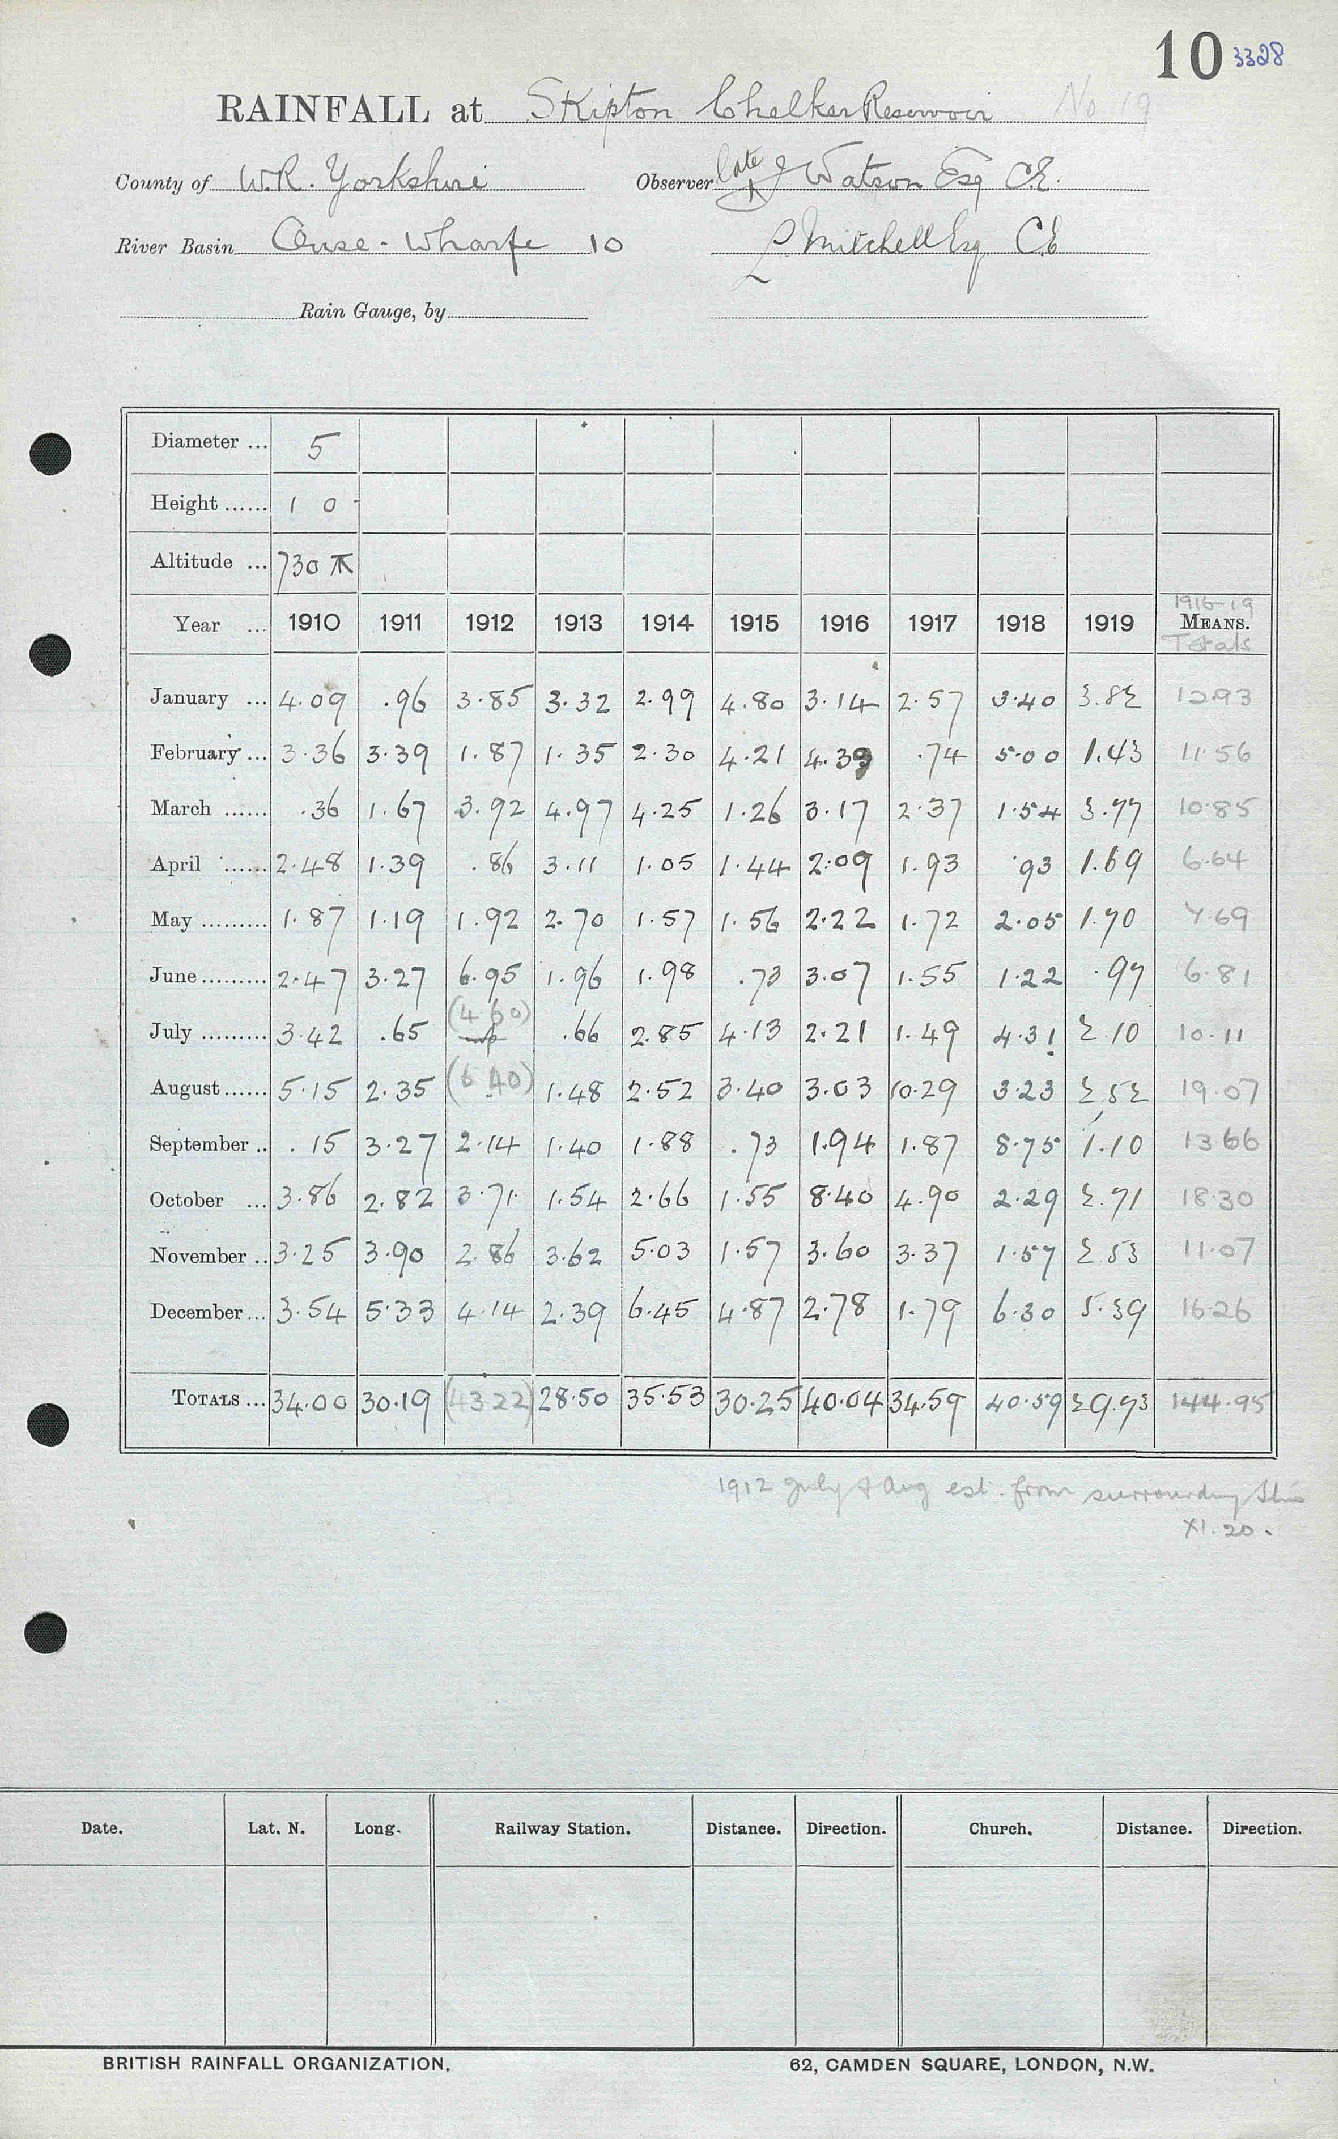 10 3328
RAINFALL at Skipton Chelker Reservoir No 19
County of W.R. Yorkshire Observer late J Watson Esq C.E.
River Basin Ouse - Wharfe 10 L. Mitchell Esq C.E
Rain Gauge, by
Diameter ... 5
Height ...... 1 0
Altitude ... 730 ft
1916-19
Year ... 1910 1911 1912 1913 1914 1915 1916 1917 1918 1919 MEANS.
Totals
January ... 4.09 .96 3.85 3.32 2.99 4.80 3.14 2.57 3.40 3.82 12.93
February ... 3.36 3.39 1.87 1.35 2.30 4.21 4.39 .74 5.00 1.43 11.56
March ...... .36 1.67 3.92 4.97 4.25 1.26 3.17 2.37 1.54 3.77 10.85
April ...... 2.48 1.39 .86 3.11 1.05 1.44 2.09 1.93 .93 1.69 6.64
May ......... 1.87 1.19 1.92 2.70 1.57 1.56 2.22 1.72 2.05 1.70 7.69
June ......... 2.47 3.27 6.95 1.96 1.98 .73 3.07 1.55 1.22 .97 6.81
July ......... 3.42 .65 (4.60) .66 2.85 4.13 2.21 1.49 4.31 2.10 10.11
August ...... 5.15 2.35 (6.40) 1.48 2.52 3.40 3.03 10.29 3.23 2.52 19.07
September .. .15 3.27 2.14 1.40 1.88 .73 1.94 1.87 8.75 1.10 13.66
October ... 3.86 2.82 3.71 1.54 2.66 1.55 8.40 4.90 2.29 2.71 18.30
November .. 3.25 3.90 2.86 3.62 5.03 1.57 3.60 3.37 1.57 2.53 11.07
December ... 3.54 5.33 4.14 2.39 6.45 4.87 2.78 1.79 6.30 5.39 16.26
TOTALS ... 34.00 30.19 (43.22) 28.50 35.53 30.25 40.04 34.59 40.59 29.73 144.95
1912 July & Aug est. from surrounding Stns
XI.20.
Date. Lat. N. Long. Railway Station. Distance. Direction. Church. Distance. Direction.
BRITISH RAINFALL ORGANIZATION. 62, CAMDEN SQUARE, LONDON, N.W.